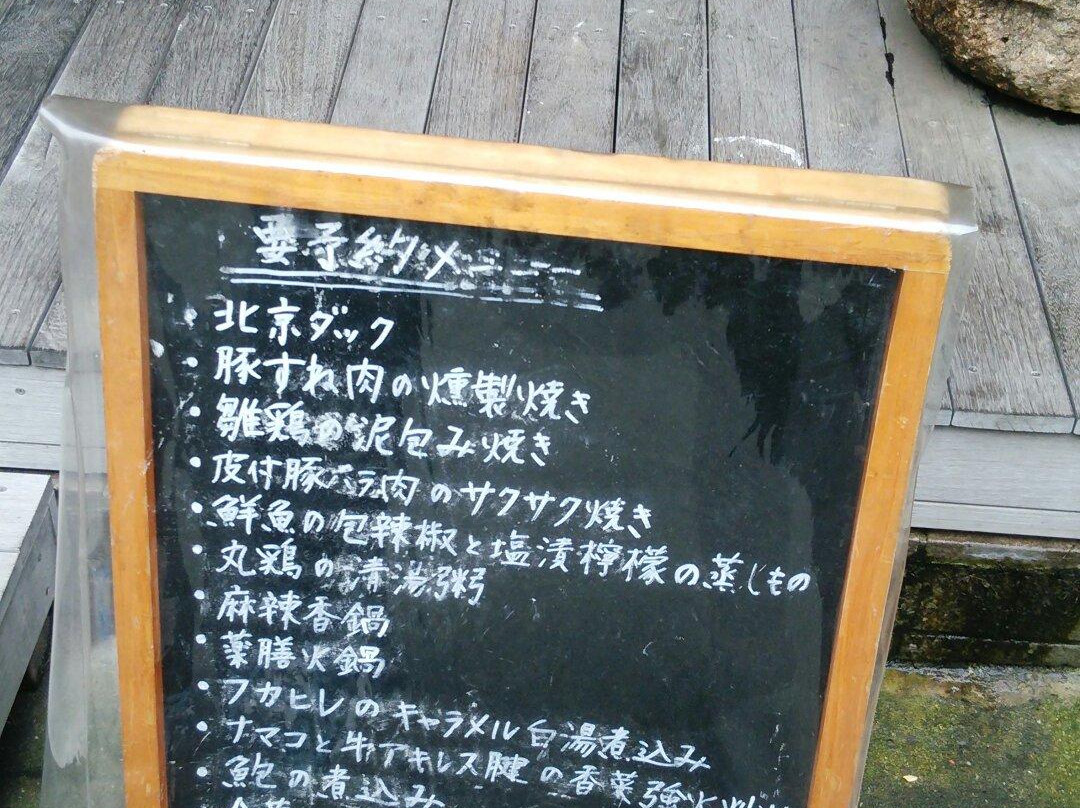 要予約メニュー
・北京ダック
・豚すね肉の燻製焼き
・雛鶏の泥包み焼き
・皮付豚バラ肉のサクサク焼き
・鮮魚の包辣椒と塩漬檸檬の蒸しもの
・丸鶏の清湯粥
・麻辣香鍋
・薬膳火鍋
・フカヒレのキャラメル白湯煮込み
・ナマコと牛アキレス腱の香菜強火
・鮑の煮込み